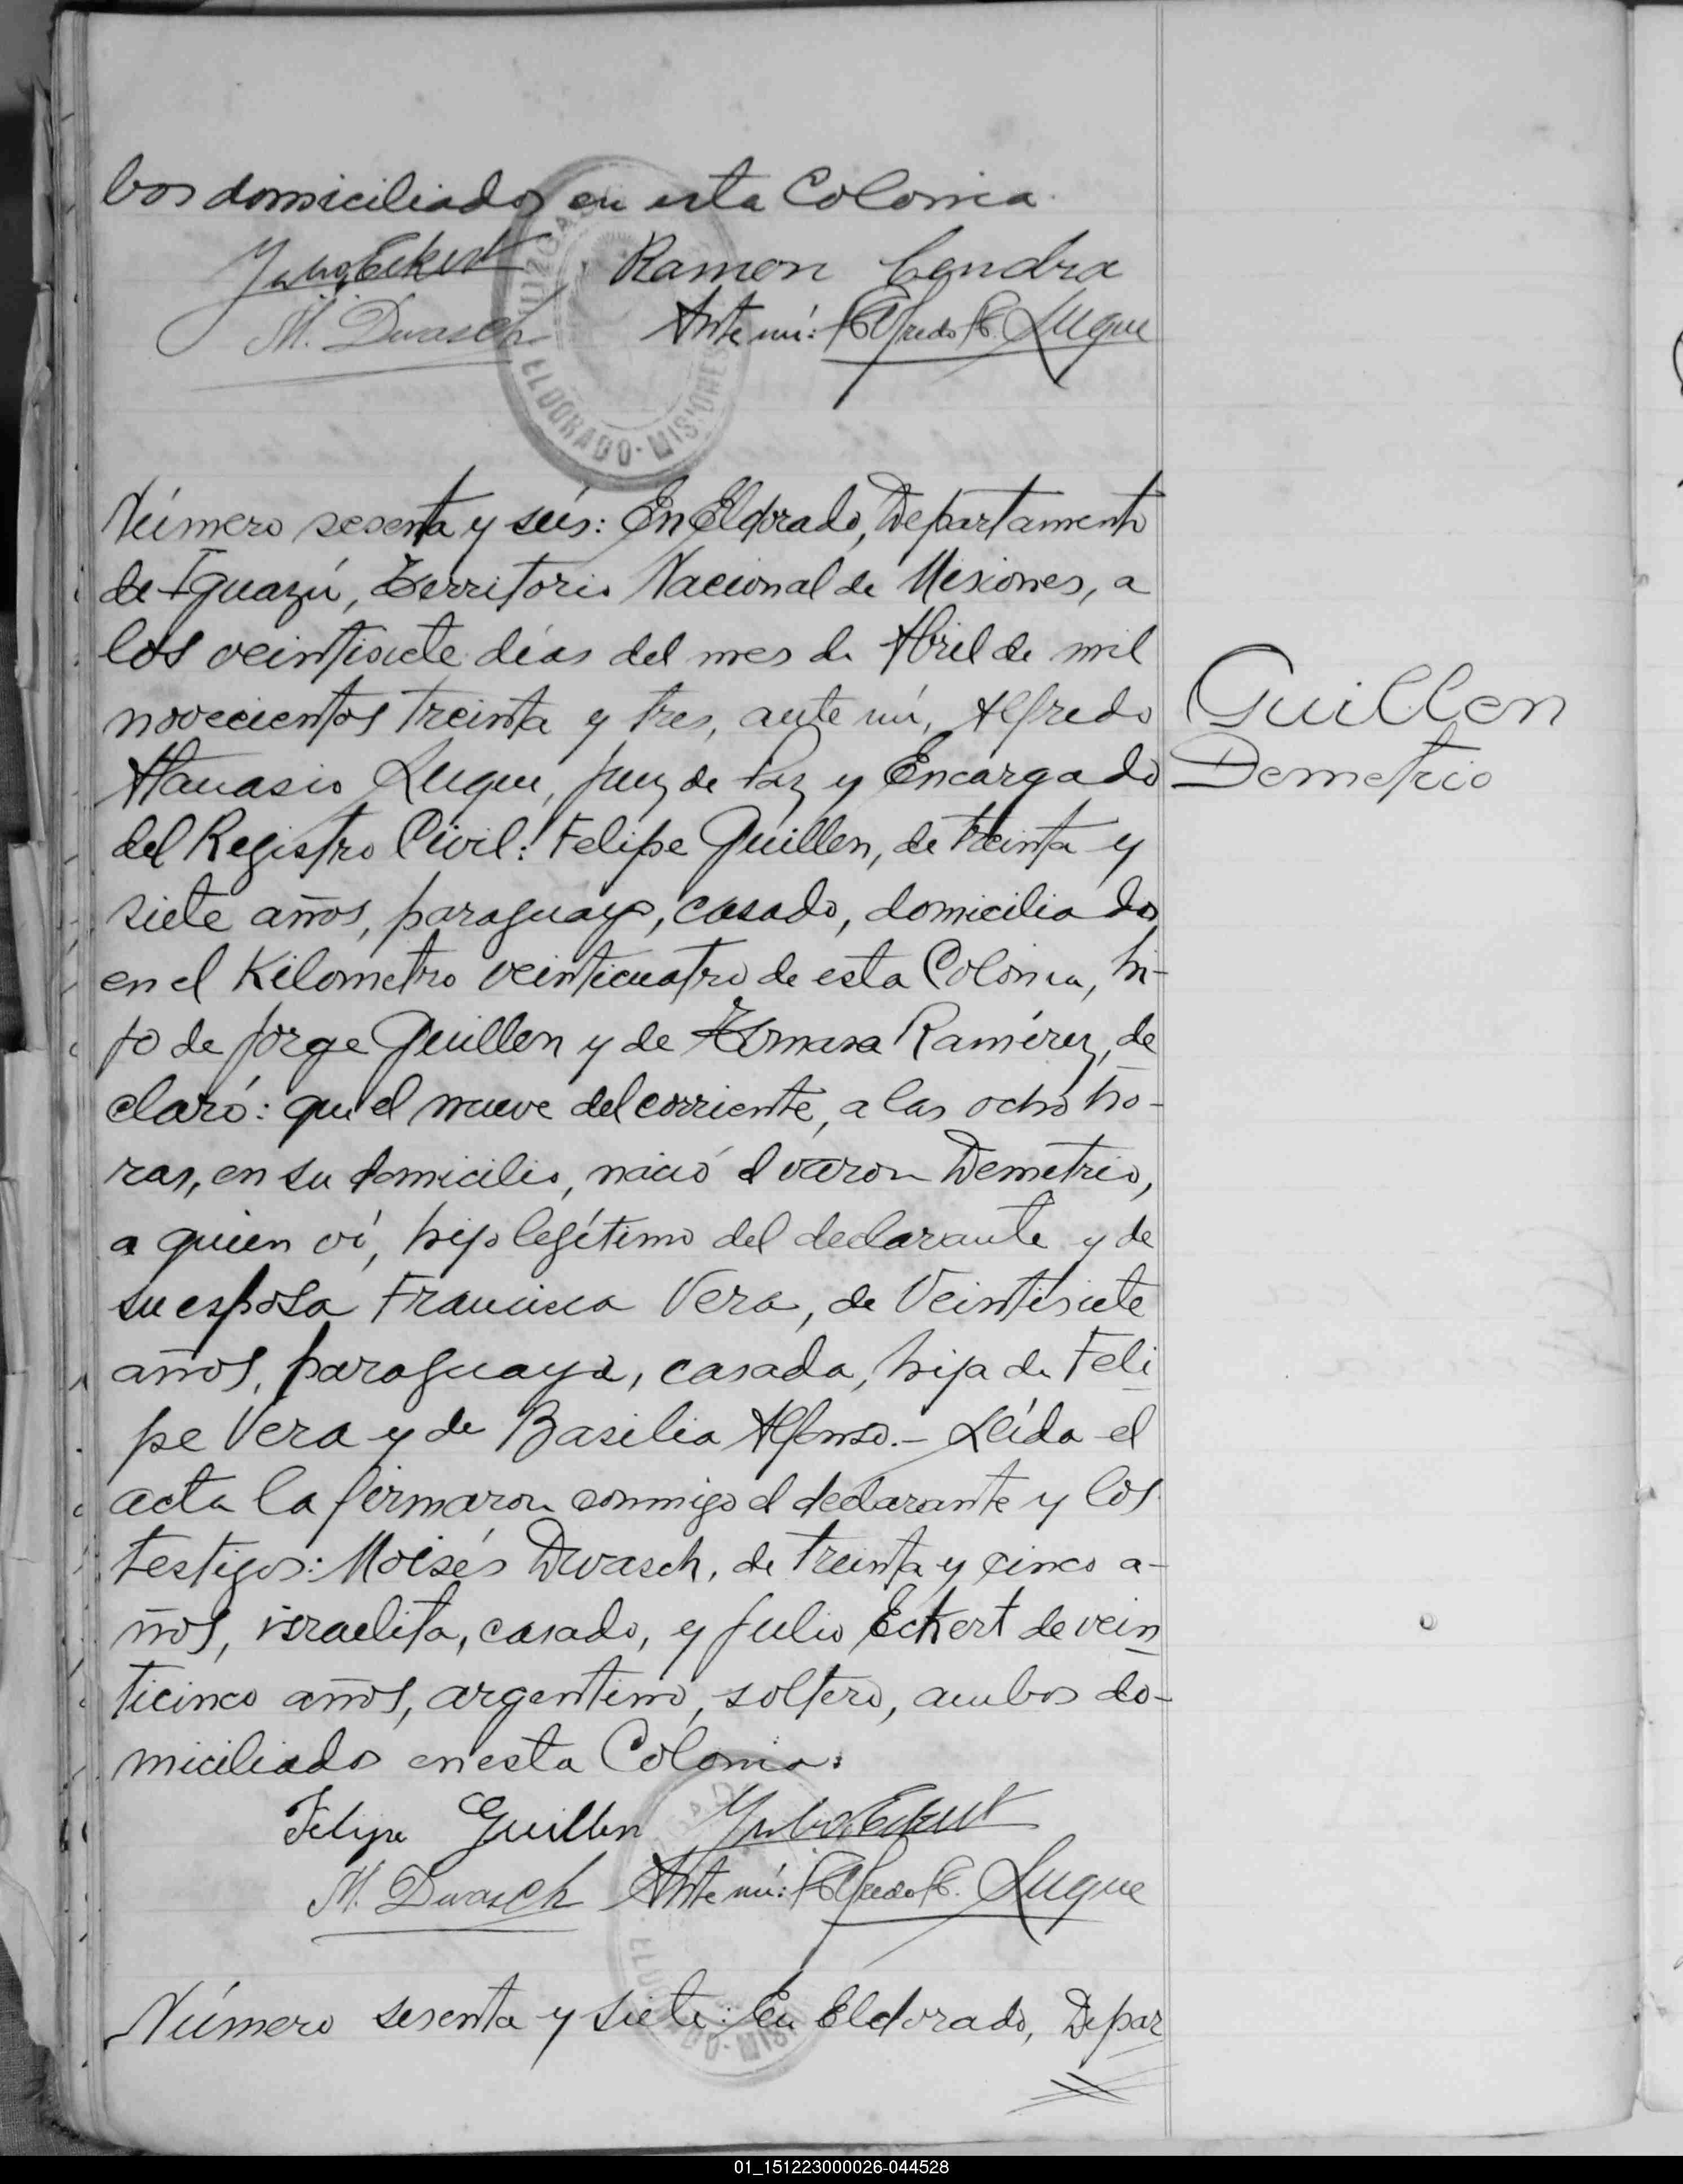 bos domiciliados en esta Colonia.
Julio Eckert Ramon Cendra
M. Dwasch Ante mí: Alfredo A. Luque
JUZGA
ELDORADO - MISIONES
Número sesenta y seis: En Eldorado, Departamento
de Iguazú, Territorio Nacional de Misiones, a
los veintisiete días del mes de Abril de mil
novecientos treinta y tres, ante mí, Alfredo
Atanasio Luque, Juez de Paz y Encargado
del Registro Civil: Felipe Guillen, de treinta y
siete años, paraguayo, casado, domiciliado
en el Kilometro veinticuatro de esta Colonia, hi-
jo de Jorge Guillen y de Tomasa Ramírez, de
claró: que el nueve del corriente, a las ocho ho-
ras, en su domicilio, nació el varon Demetrio,
a quien ví, hijo legítimo del declarante y de
su esposa Francisca Vera, de Veintisiete
años, paraguaya, casada, hija de Feli
pe Vera y de Basilia Alfonso.- Leída el
acta la firmaron conmigo el declarante y los
testigos: Moisés Dwasch, de treinta y cinco a-
ños, israelita, casado, y Julio Eckert de vein
ticinco años, argentino, soltero, ambos do-
miciliados en esta Colonia:
Felipe Guillen Julio Eckert
M. Dwasch Ante mí: Alfredo A. Luque
Número sesenta y siete: En Eldorado, Depar
Guillen
Demetrio
01_151223000026-044528